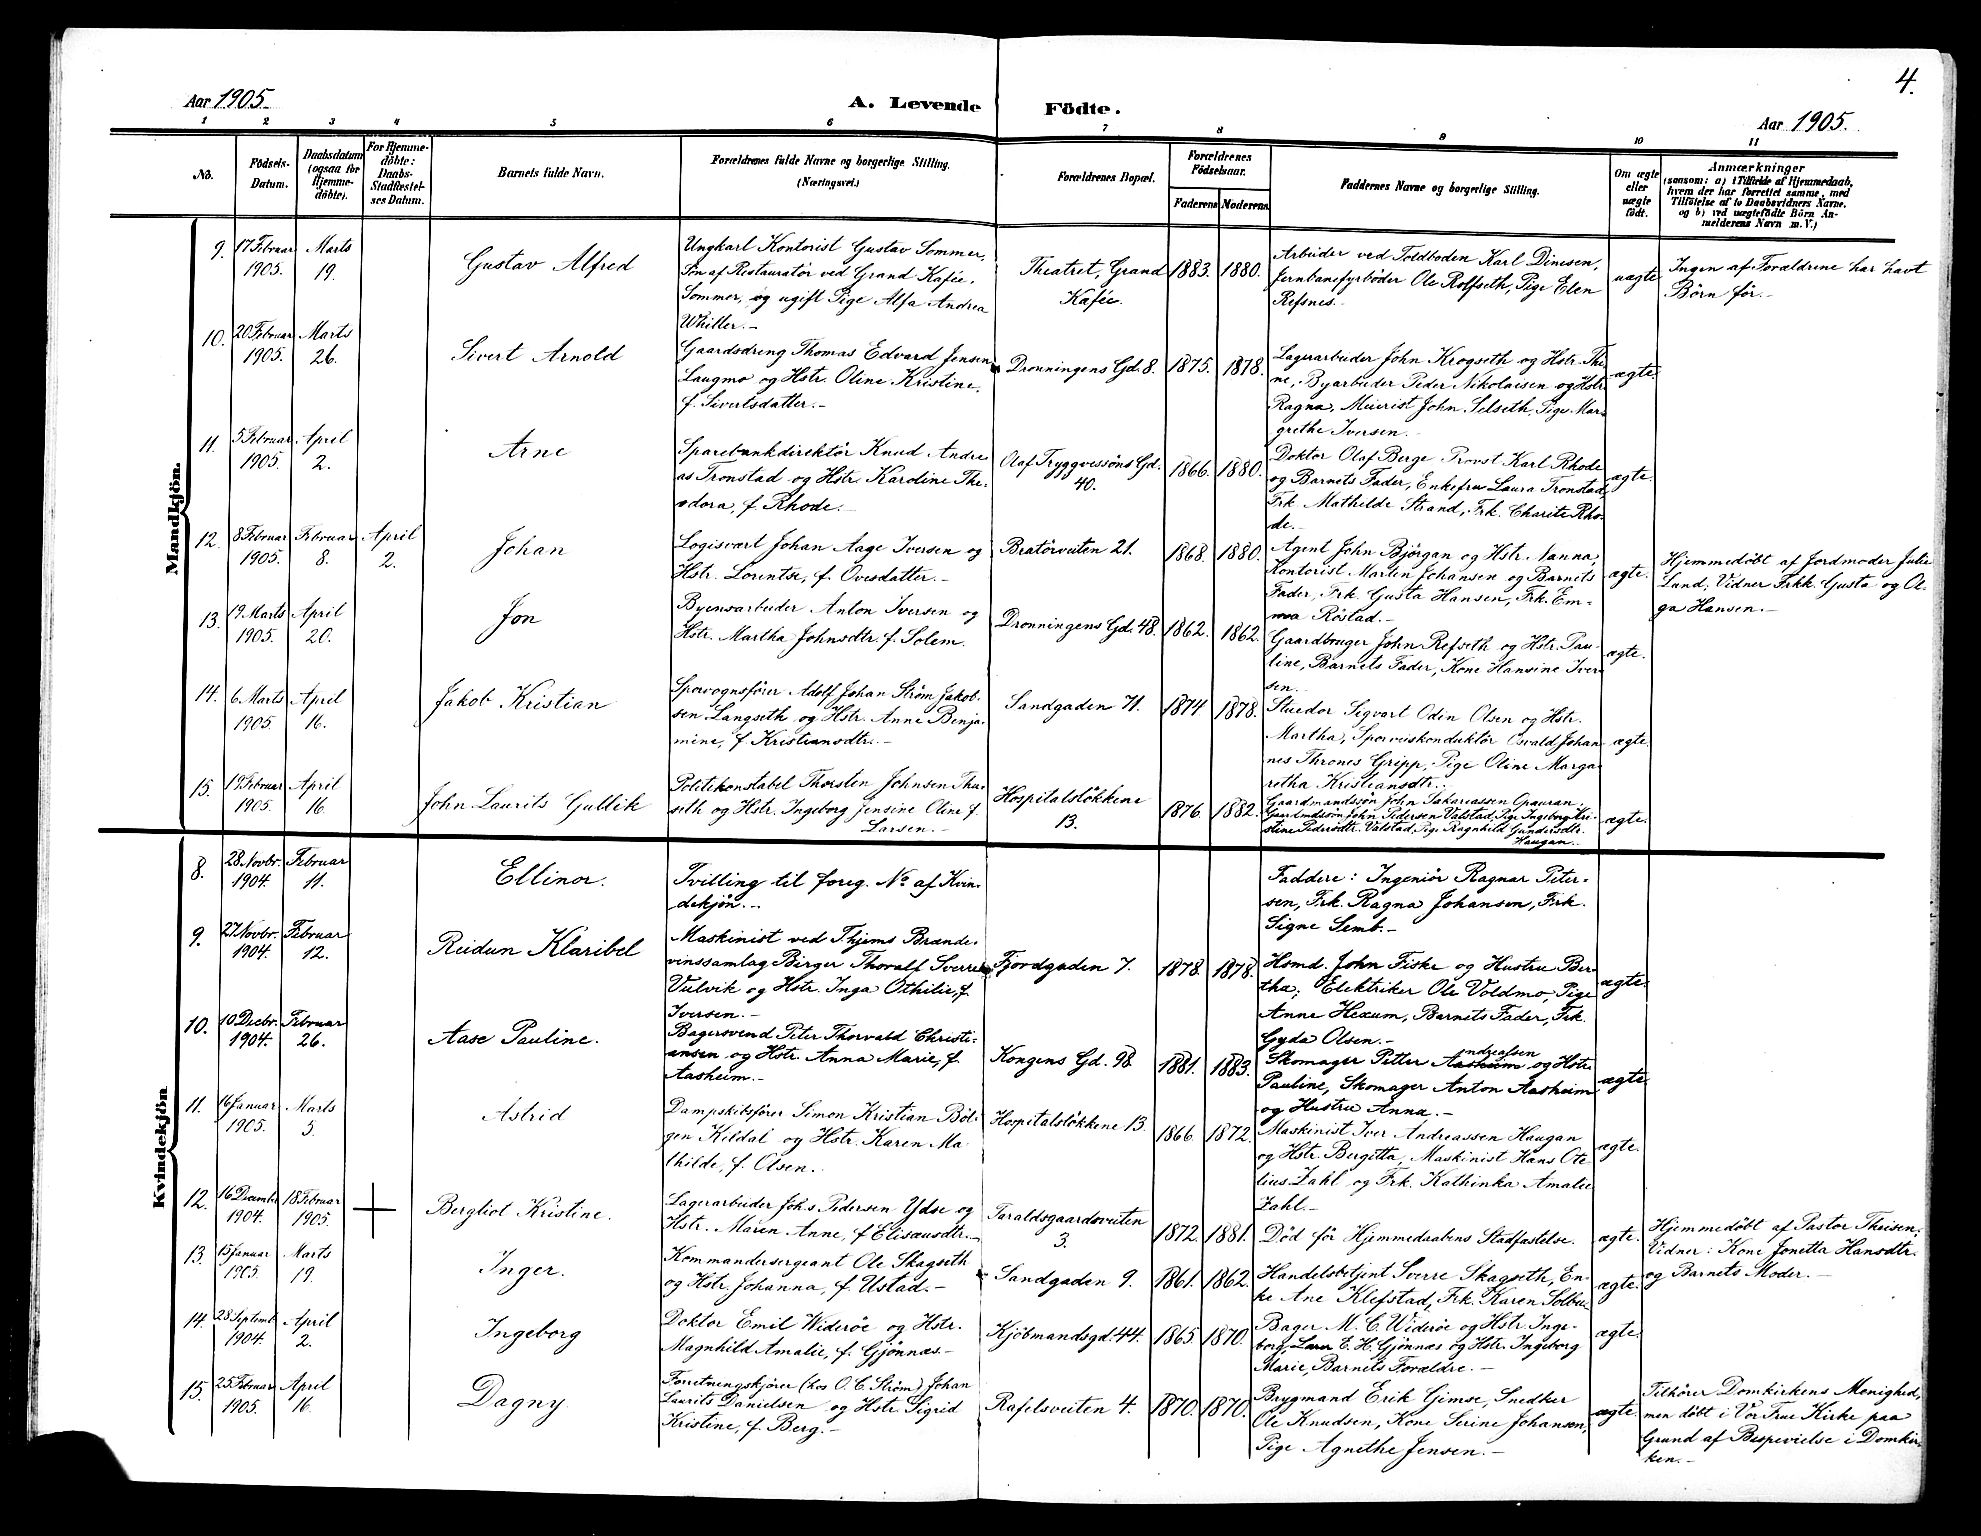 4.
Aar 1905.
A. Levende Födte.
Aar 1905.
1 2 3 4 5 6 7 8 9 10 11
No.
Födsels-
Datum.
Daabsdatum
(ogsaa for
Hjemme-
döbte).
For Hjemme-
döbte:
Daabs-
Stadfæstel-
ses Datum.
Barnets fulde Navn.
Forældrenes fulde Navne og borgerlige Stilling.
(Næringsvei.)
Forældrenes Bopæl.
Forældrenes
Födselsaar.
Faderens Moderens
Faddernes Navne og borgerlige Stilling.
Om ægte
eller
uægte
födt.
Anmærkninger
(saasom: a) i Tilfælde af Hjemmedaab,
hvem der har forrettet samme, med
Tilföielse af to Daabsvidners Navne,
og b) ved uægtefödte Börn An-
melderens Navn m. V.)
Mandkjön.
9.
17 Februar
1905.
Marts
19.
Gustav Alfred
Ungkarl Kontorist Gustav Sommer,
Sön af Restauratör ved Grand Kafée,
Sommer, og ugift Pige Alfa Andrea
Whiller.-
Theatret, Grand
Kafée.
1883. 1880.
Arbeider ved Toldboden Karl Dinesen,
Jernbanefyrböder Ole Rolfseth, Pige Elen
Refsnes.
uægte
Ingen af Forældrene har havt
Börn för.-
10.
20 Februar
1905.
Marts
26.
Sivert Arnold
Gaardsdreng Thomas Edvard Jensen
Laugmo og Hstr. Oline Kristine,
f. Sivertsdatter.-
Dronningens Gd. 8.
1875. 1878.
Lagerarbeider John Krogseth og Hstr. Thi-
ne, Byarbeider Peder Nikolaisen og Hstr.
Ragna, Meierist John Selseth, Pige Mar-
grethe Iversen.
ægte.
11.
5 Februar
1905.
April
2.
Arne
Sparebankdirektör Knud Andre-
as Tronstad og Hstr. Karoline The-
odora, f. Rhode.-
Olaf Tryggvessöns Gd.
40.
1866. 1880.
Doktor Olaf Berge Provst Karl Rhode
og Barnets Fader, Enkefru Laura Tronstad,
Frk. Mathilde Strand, Frk. Charite Rho-
de.-
ægte.
12.
8 Februar
1905.
Februar
8.
April
2.
Johan
Logisvært Johan Aage Iversen og
Hstr. Lorentse, f. Ovesdatter.-
Bratörveiten 21.
1868. 1880.
Agent John Björgan og Hstr. Nanna,
Kontorist Martin Johansen og Barnets
Fader, Frk. Gusta Hansen, Frk. Em-
ma Röstad.-
ægte.
Hjemmedöbt af Jordmoder Julie
Lund, Vidner Frkk. Gusta og Ol-
ga Hansen.-
13.
19 Marts
1905.
April
20.
Jon
Byensarbeider Anton Iversen og
Hstr. Martha Johnsdtr. f. Solem.
Dronningens Gd. 48.
1862. 1862.
Gaardbruger John Refseth og Hstr. Pau-
line, Barnets Fader, Kone Hansine Iver-
sen.
ægte.
14.
6 Marts
1905.
April
16.
Jakob Kristian
Sporvognsförer Adolf Johan Ström Jakob-
sen Langseth og Hstr. Anne Benja-
mine, f Kristiansdtr.-
Sandgaden 71.
1874 1878.
Stuedor Sigvart Odin Olsen og Hstr.
Martha, Sporveiskonduktör Osvald Johan-
nes Thrones Gripp, Pige Oline Marga-
retha Kristiansdtr.
ægte.
15.
19 Februar
1905.
April
16.
John Laurits Gullik
Politikonstabel Thorsten Johnsen Thu-
seth og Hstr. Ingeborg Jensine Oline f.
Larsen.-
Hospitalslökkene
13.
1876. 1882.
Gaardmandssön John Sakariassen Opauran
Gaardmdssön John Pedersen Valstad, Pige Ingeborg Kri-
stine Pedersdtr. Valstad, Pige Ragnhild Gundersdtr.
Haugan.
ægte.
Kvindekjön
8.
28 Novbr.
1904.
Februar
11.
Ellinor.
Tvilling til foreg. No. af Kvin-
dekjön.-
Faddere: Ingeniör Ragnar Peter-
sen, Frk. Ragna Johansen, Frk.
Signe Semb.-
9.
27 Novbr.
1904.
Februar
12.
Reidun Klaribel
Maskinist ved Thjems Brænde-
vinssamlag Birger Thoralf Sverre
Vulvik og Hstr. Inga Othilie, f.
Iversen.-
Fjordgaden 7.
1878. 1878.
Hsmd. John Fiske og Hustru Ber-
tha; Elektriker Ole Voldmo, Pige
Anne Hexum, Barnets Fader, Frk.
Gyda Olsen.-
ægte.
10.
10 Decbr.
1904.
Februar
26.
Aase Pauline.
Bagersvend Peter Thorvald Christi-
ansen og Hstr. Anna Marie, f.
Aasheim.-
Kongens Gd. 98.
1881. 1883.
Skomager Petter Andreassen og Hstr.
Pauline, Skomager Anton Aasheim
og Hustru Anna.-
ægte.
11.
16 Januar
1905.
Marts
5.
Astrid
Dampskibsförer Simon Kristian Böl-
gen Kildal og Hstr. Karen Ma-
thilde, f. Olsen.
Hospitalslökkene 13.
1866. 1872.
Maskinist Iver Andreassen Haugan
og Hstr. Bergitta, Maskinist Hans Ote-
lius Zahl og Frk. Kathinka Amalie
Zahl.-
ægte.
12.
16 Decembr
1904.
18 Februar
1905.
Bergliot Kristine.
Lagerarbeider Johs Pedersen Ydse og
Hstr. Maren Anne, f Eliseusdtr.-
Taraldsgaardsveiten
3.
1872. 1881.
Död för Hjemmedaabens Stadfæstelse.
ægte.
Hjemmedöbt af Pastor Thaisen,
Vidner: Kone Jonetta Hansdtr.
og Barnets Moder.-
13.
15 Januar
1905.
Marts
19.
Inger.
Kommandersergeant Ole Skagseth
og Hstr. Johanna, f. Ustad.-
Sandgaden 9.
1861. 1862.
Handelsbetjent Sverre Skagseth, En-
ke Ane Klefstad, Frk. Karen Solbu.
ægte.
14.
28 Septemb
1904.
April
2.
Ingeborg
Doktor Emil Wideröe og Hstr.
Magnhild Amalie, f. Gjönnæs.-
Kjöbmandsgd. 44.
1865. 1870.
Bager M. C. Wideröe og Hstr. Inge-
borg, Lærer E. H. Gjönnæs og Hstr. Ingeborg
Marie, Barnets Forældre.-
ægte.
15.
25 Februar
1905.
April
16.
Dagny
Forretningskjörer (hos O. C. Ström) Johan
Laurits Danielsen og Hstr. Sigrid
Kristine, f. Berg.-
Rafelsveiten 4.
1870. 1870.
Brygmand Erik Gimse, Snedker
Ole Knudsen, Kone Serine Johansen,
Pige Agnethe Jensen.-
ægte.
Tilhörer Domkirkens Menighed,
men döbt i Vor Frue Kirke paa
Grund af Bispevielse i Domkir-
ken.-